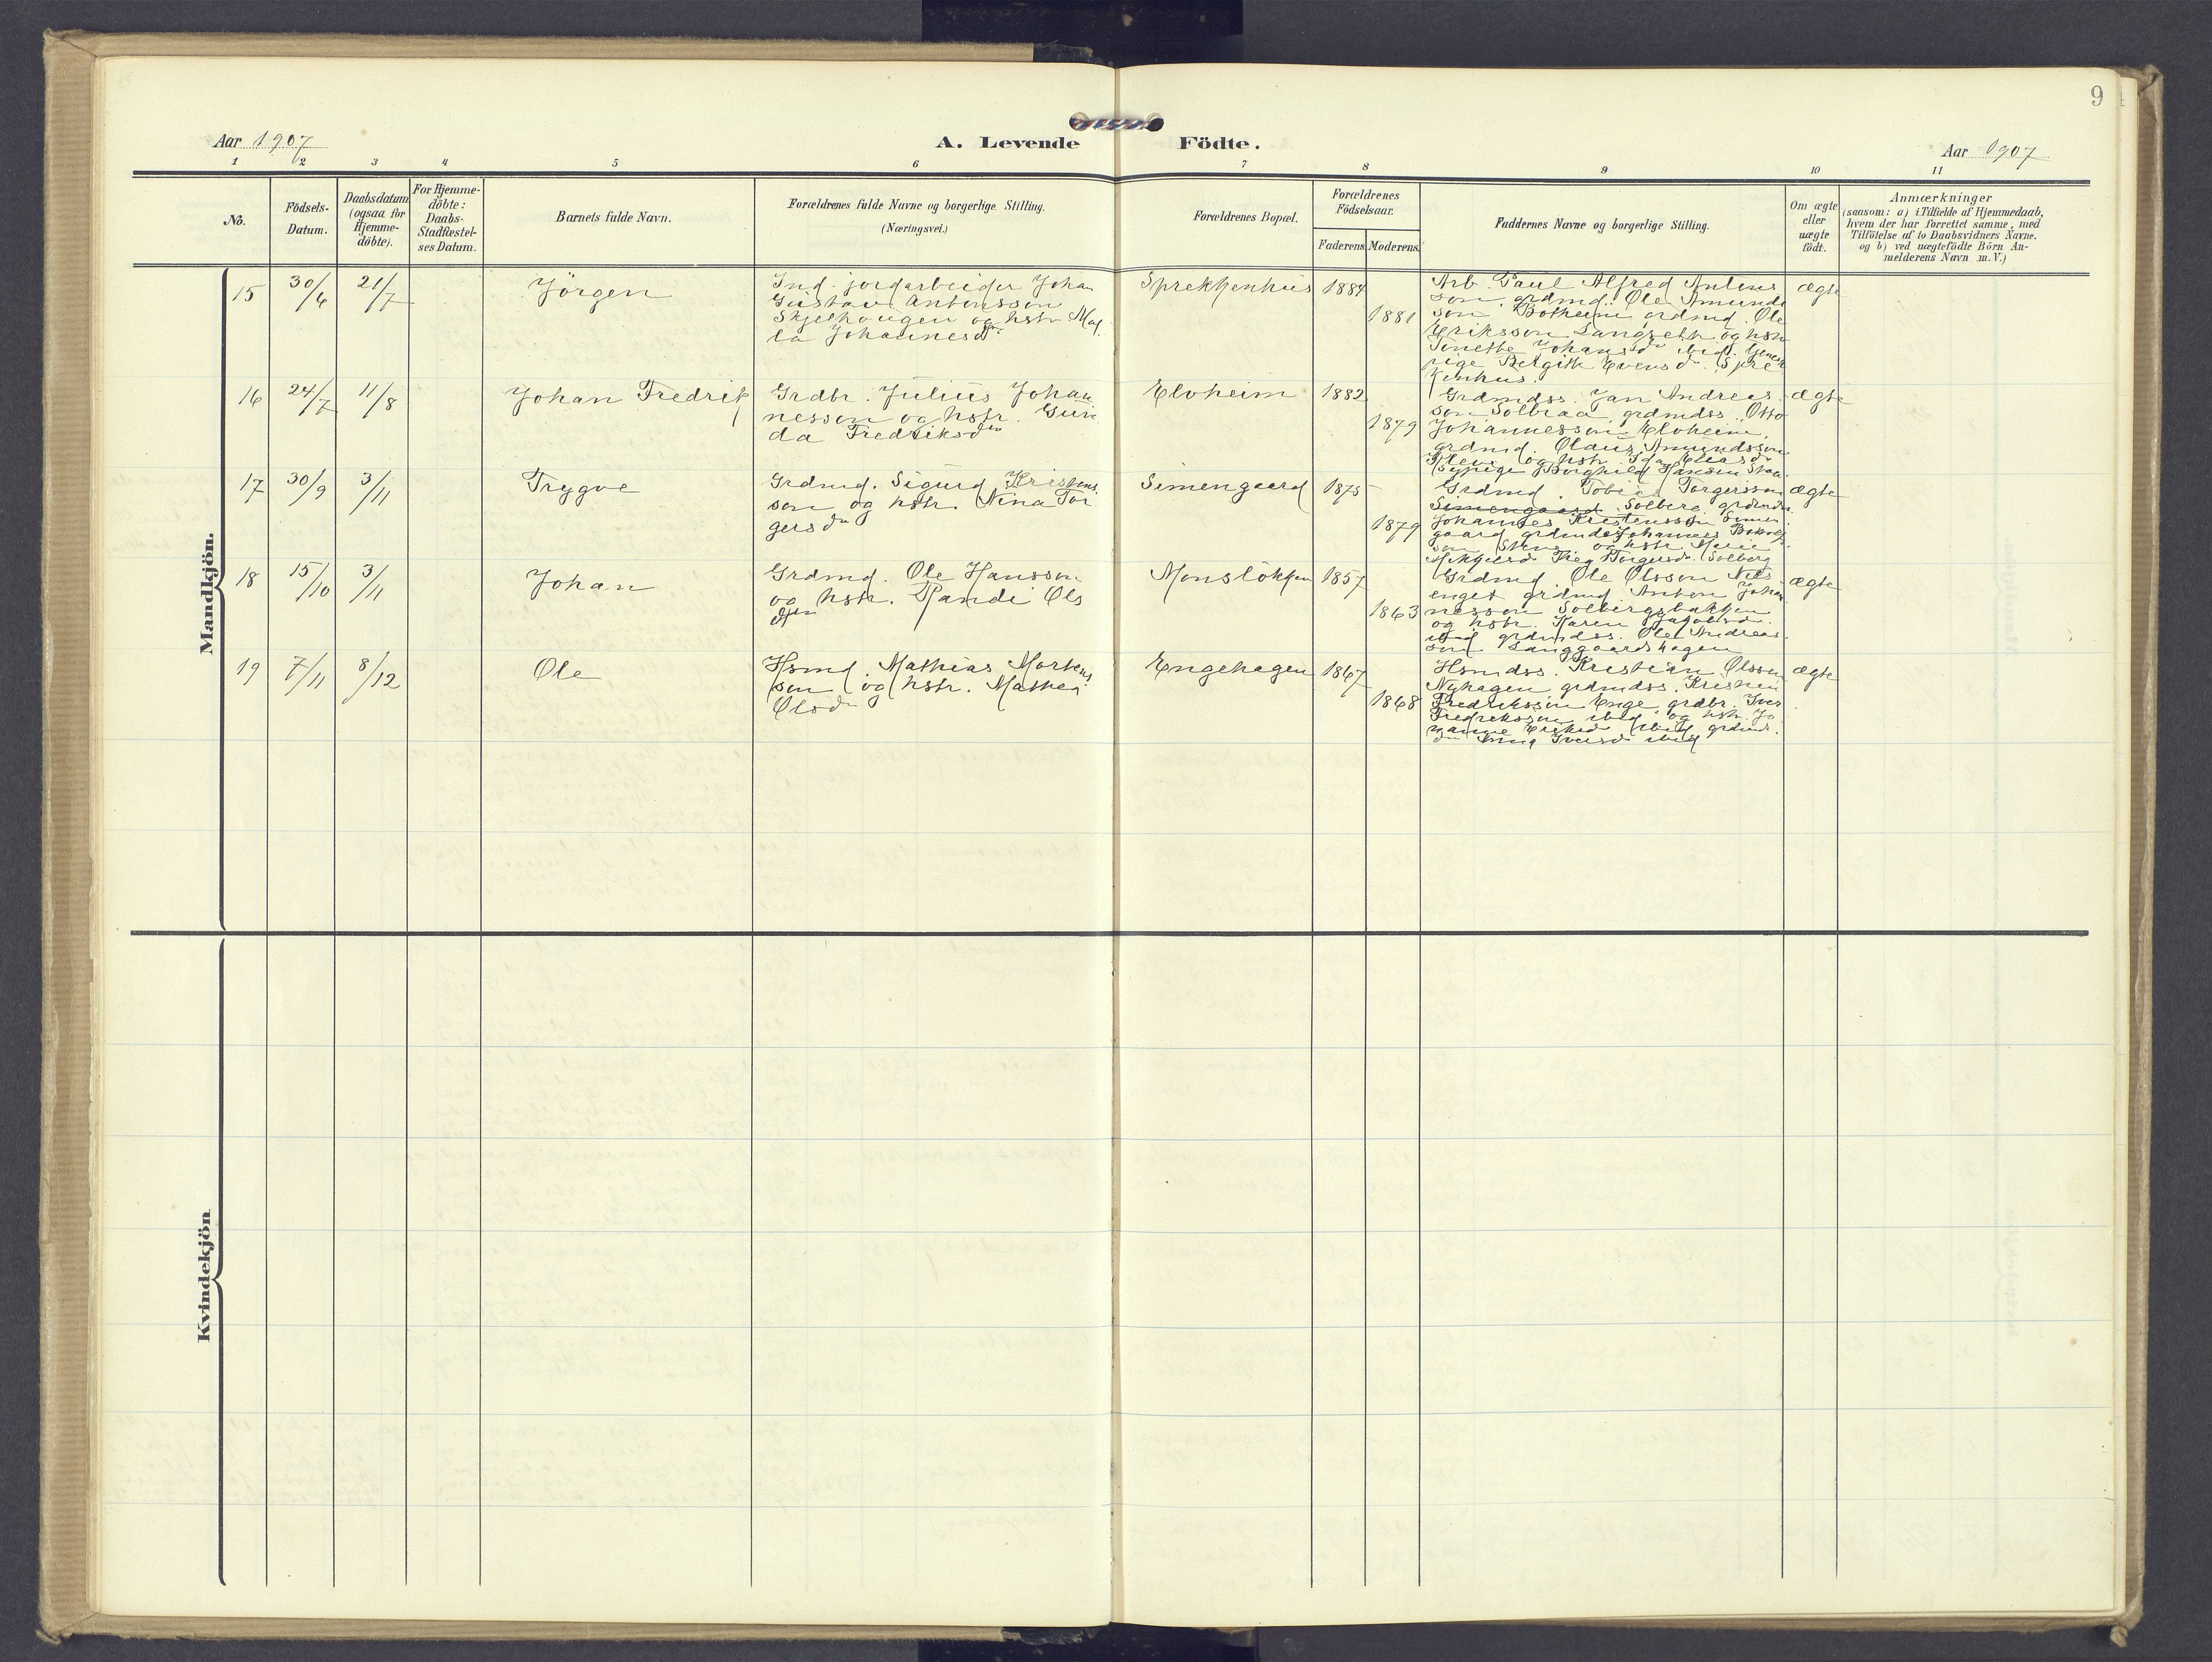 9
Aar 1907
A. Levende Födte.
Aar 1907
1 2 3 4 5 6 7 8 9 10 11
No.
Födsels-
Datum.
Daabsdatum
(ogsaa for
Hjemme-
döbte).
For Hjemme-
döbte:
Daabs-
Stadfæstel-
ses Datum.
Barnets fulde Navn.
Forældrenes fulde Navne og borgerlige Stilling.
(Næringsvei.)
Forældrenes Bopæl.
Forældrenes
Födselsaar.
Faderens Moderens.
Faddernes Navne og borgerlige Stilling.
Om ægte
eller
uægte
födt.
Anmærkninger
(saasom: a) i Tilfælde af Hjemmedaab,
hvem der har forrettet samme, med
Tilföielse af to Daabsvidners Navne,
og b) ved uægtefödte Börn An-
melderens Navn m. V.)
Mandkjön.
15 30/6 21/7 Jörgen
Ind. jordarbeider Johan
Gustav Antonsson
Skjelhougen og hstr. Mat
la Johannesdtr
Sprekkenhus 1884
1881
Arb. Paul Alfred Antons
son, grdmd. Ole Amunds
son Botheim grdmd. Ole
Eriksson Langseth og hstr
Tonette Johansdtr ibid.
pige Bergith Evensd. Spre
kenhus.
ægte
16 24/7 11/8 Johan Fredrik
Grdbr. Julius Johan
nesson og hstr. Gun
da Fredriksdtr
Eloheim 1882
1879
Grdmdss. Jan Andreas
son Solbraa grdmdss. Otto
Johannesson Eloheim,
grdmd. Olaus Amundsson
og hstr. Ida
Sypige Borghild Hansen
ægte
17 30/9 3/11 Trygve
Grdmd. Sigurd Kristens
son og hstr. Nina Tor
gersdtr
Simengaard 1875
1879
Grdmd. Tobias Torgersson
Simengaard Solberg grdmdss.
Johannes Kristensson Simen
gaard grdmds Johannes
son og hstr. Marie
Torgersd. Solberg
ægte
18 15/10 3/11 Johan
Grdmd. Ole Hansson
og hstr. Randi Ols
dtr
Monslökken 1857
1863
Grdmd. Ole Olsson Nils
enget grdmd. Anton Johan
nesson Solbergsbakken
og hstr. Karen Jakobsd.
ibid grdmdss. Ole Andreas
son Langgaardshagen
ægte
19 7/11 8/12 Ole
Hsmd. Mathias Mortens
son og hstr. Mathea
Olsdtr
Engehagen 1867
1868
Hsmdss. Kristian Olsson
Nyhagen grdmdss. Kristian
Fredriksson Enge grdbr. Iver
Fredriksson ibid og hstr. Jo
hanne ibid grdmd.
dtr Iversd. ibid
ægte
Kvindekjön